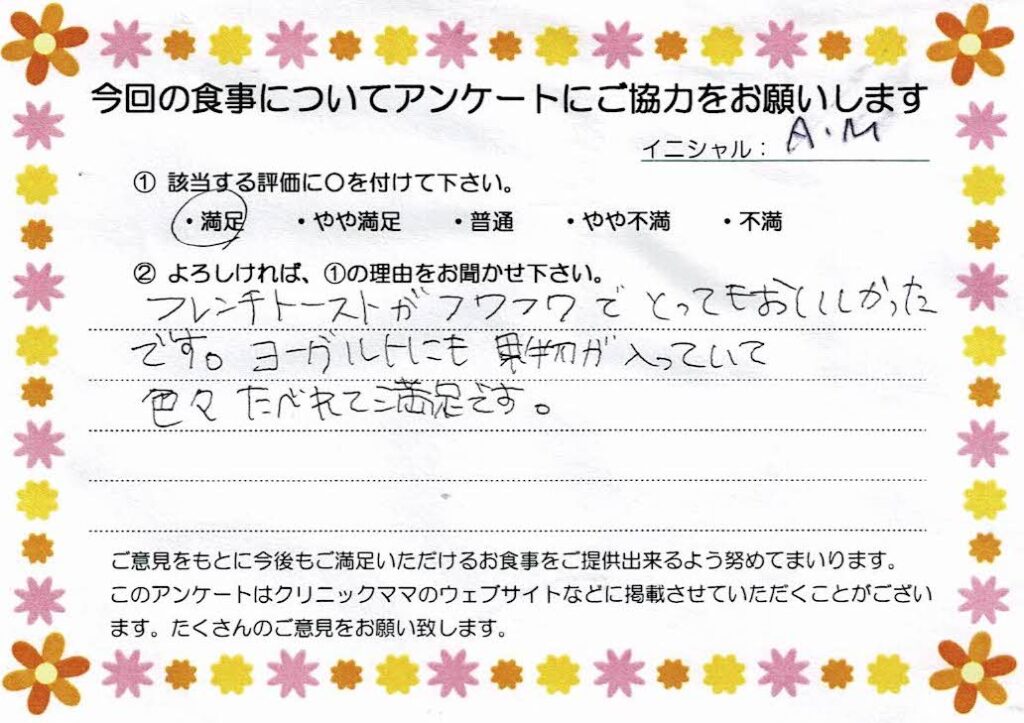 今回の食事についてアンケートにご協力をお願いします
イニシャル： A.M
① 該当する評価に〇を付けて下さい。
・満足 ・やや満足 ・普通 ・やや不満 ・不満
② よろしければ、①の理由をお聞かせ下さい。
フレンチトーストがフワフワでとってもおいしかった
です。ヨーグルトにも果物が入っていて
色々たべれて満足です。
ご意見をもとに今後もご満足いただけるお食事をご提供出来るよう努めてまいります。
このアンケートはクリニックママのウェブサイトなどに掲載させていただくことがござい
ます。たくさんのご意見をお願い致します。